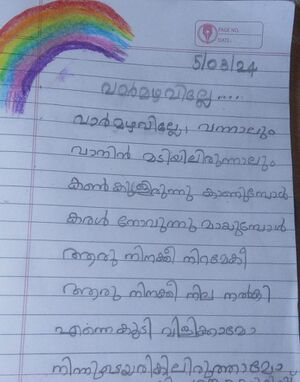 PAGE NO.
DATE:
5/03/24
വാർമഴവില്ലേ....
വാർമഴവില്ലേ, വന്നാലും
വാനിൻ മടിയിലിരുന്നാലും
കൺ കുളിരുന്നു കാണുമ്പോൾ
കരൾ നോവുന്നു മായുമ്പോൾ
ആരു നിനക്കീ നിറമേകി
ആരു നിനക്കീ നില നൽകി
എന്നെകൂടി വിളിക്കാമോ
നിന്നുടെയരികിലിരുത്താമോ